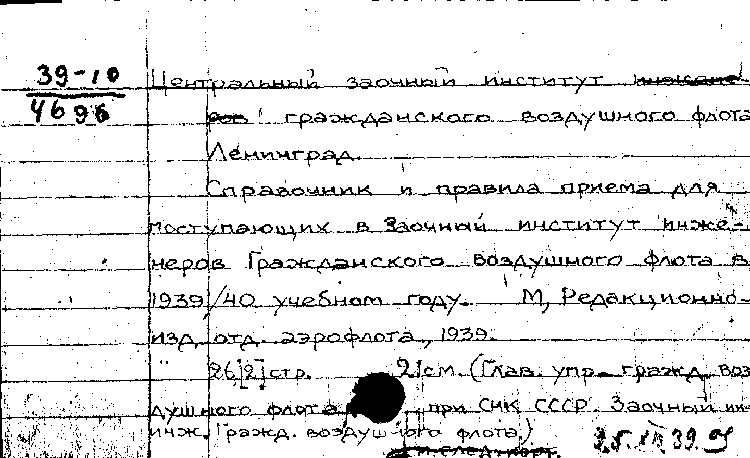 39-10
4696
Центральный заочный институт инжене
ров гражданского воздушного флота
Ленинград.
Справочник и правила приема для
поступающих в Заочный институт инже-
неров Гражданского воздушного флота в
1939/40 учебном году. М, Редакционно-
изд. отд. аэрофлота, 1939.
26[2]стр. 21см. (Глав. упр. гражд. воз
душного флота при СНК СССР. Заочный ин
инж. Гражд. воздушного флота)